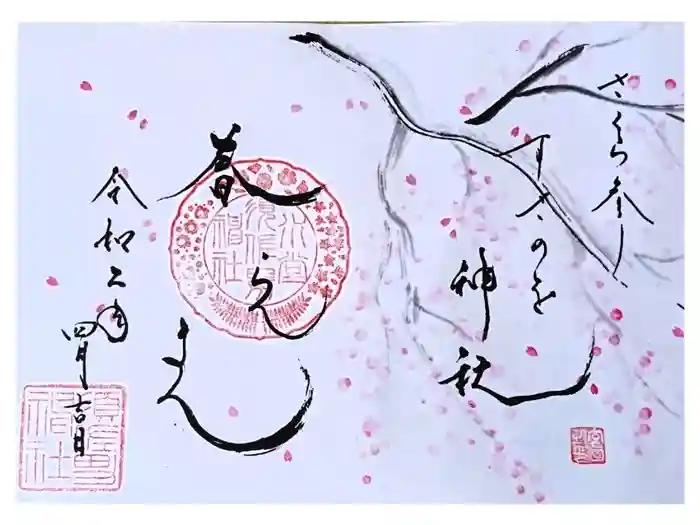 さくら参り
すさのを
神社
春らん
まん
令和二年
四月吉日